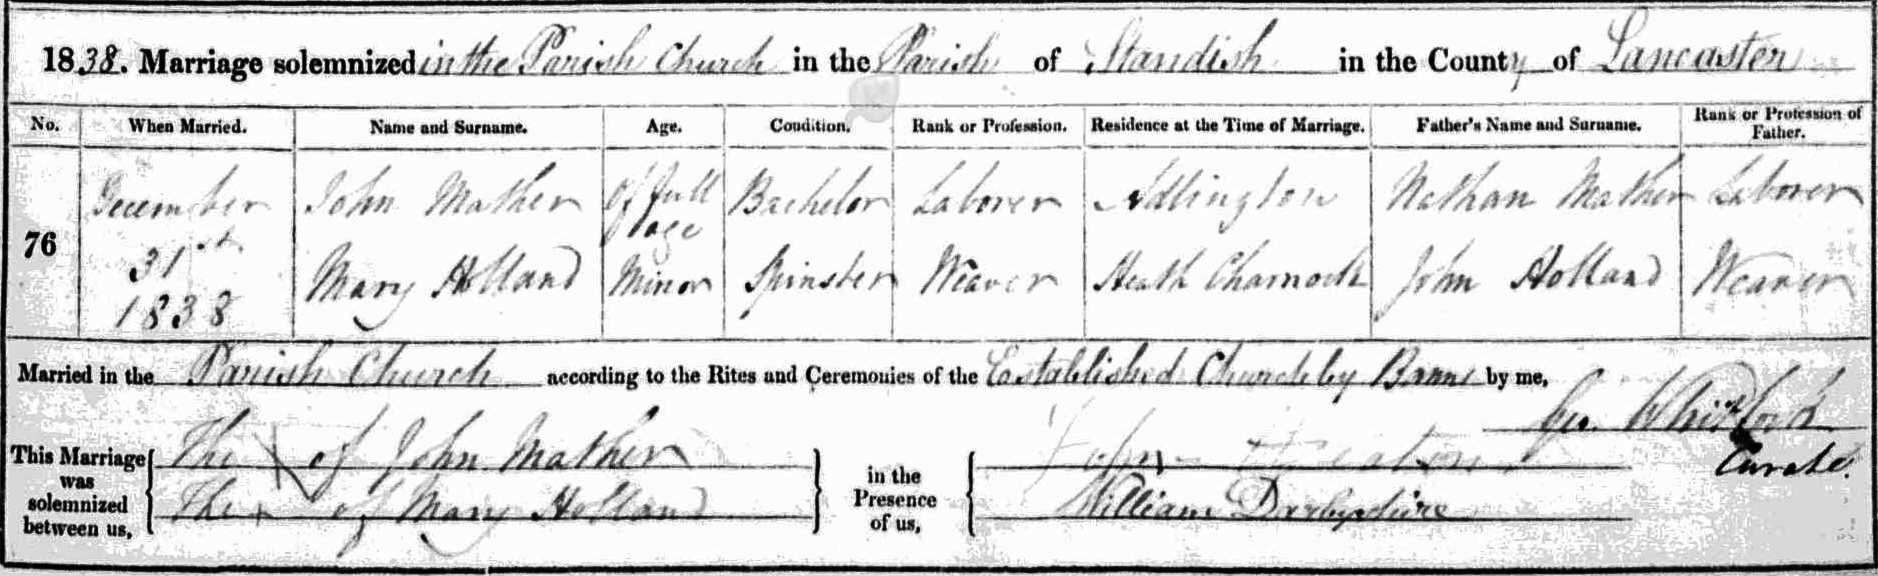 1838. Marriage solemnized in the Parish Church in the Parish of Standish in the County of Lancaster
No. When Married. Name and Surname. Age. Condition. Rank or Profession. Residence at the Time of Marriage. Father's Name and Surname. Rank or Profession of Father.
76 December 31st 1838
John Mather Of full age Bachelor Laborer Adlington Nathan Mather Laborer
Mary Holland Minor Spinster Weaver Heath Charnock John Holland Weaver
Married in the Parish Church according to the Rites and Ceremonies of the Established Church by Banns by me,
Geo. Whitlock
Curate.
This Marriage was solemnized between us,
The X of John Mather
The x of Mary Holland
in the Presence of us,
John Heaton
William Darbyshire